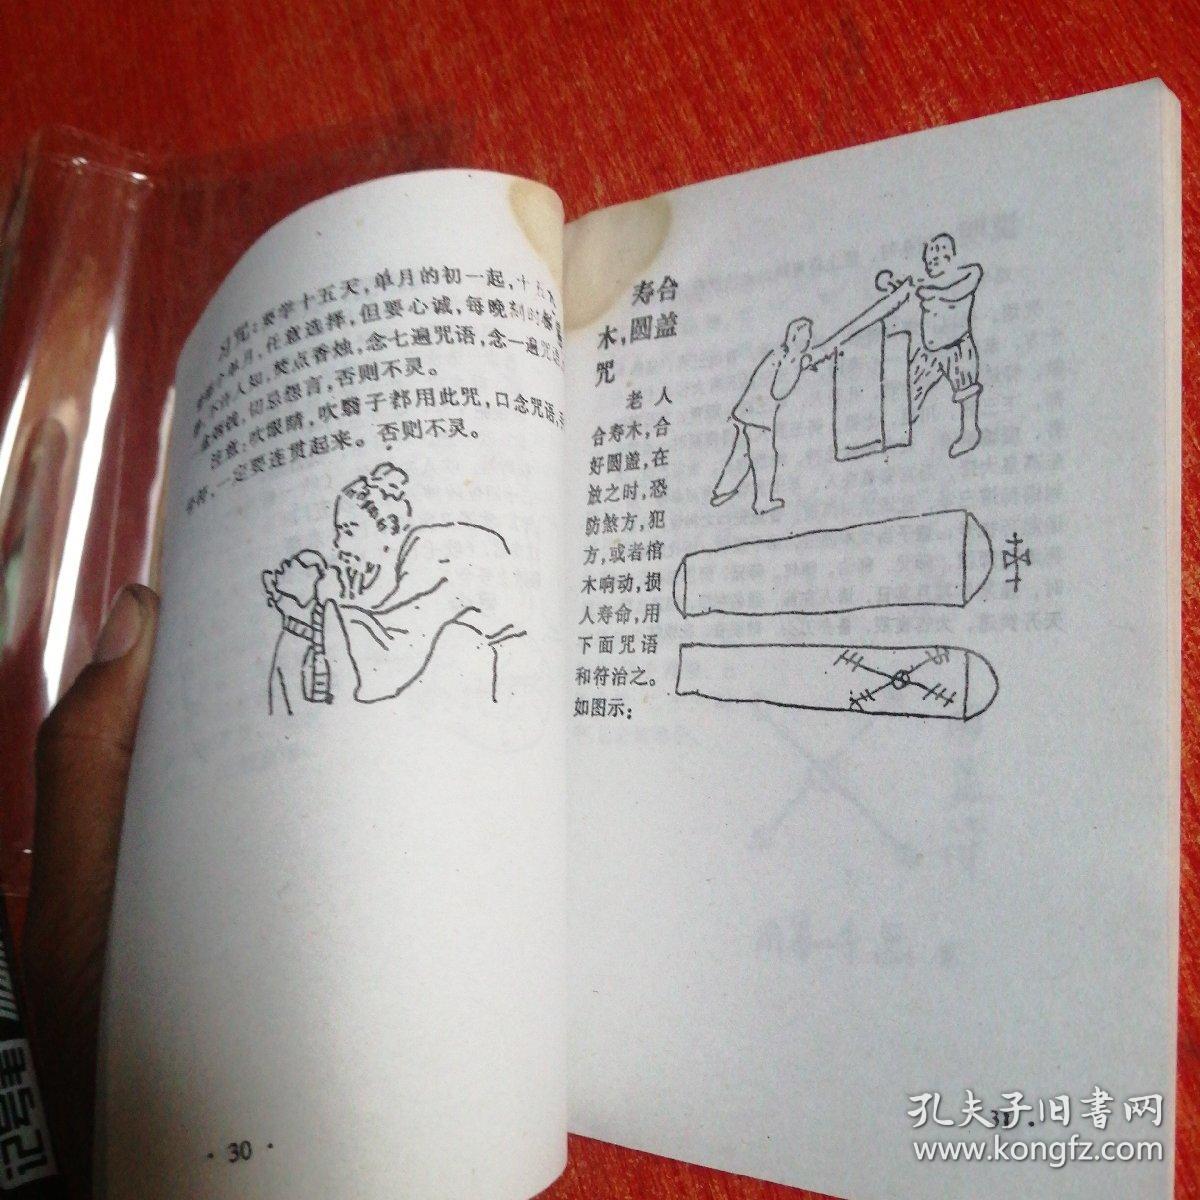 习咒：要学十五天，单月的初一起，十五
个单月，任意选择，但要心诚，每晚
不许人知，焚点香烛，念七遍咒语，念一遍咒语
金银钱，切忌怨言，否则不灵。
注意：吹眼睛，吹翳子都用此咒，口念咒语，
一定要连贯起来。否则不灵。
· 30 ·
寿合
木，圆盖
咒
老人
合寿木，合
好圆盖，在
放之时，恐
防煞方，犯
方，或者棺
木响动，损
人寿命，用
下面咒语
和符治之。
如图示：
31 ·
孔夫子旧书网
www.kongfz.com
记号笔